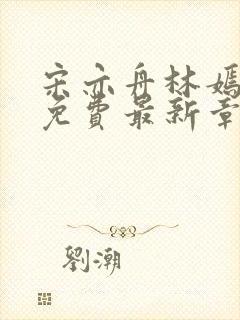 宋亦舟林嫣
免費最新章
劉潮